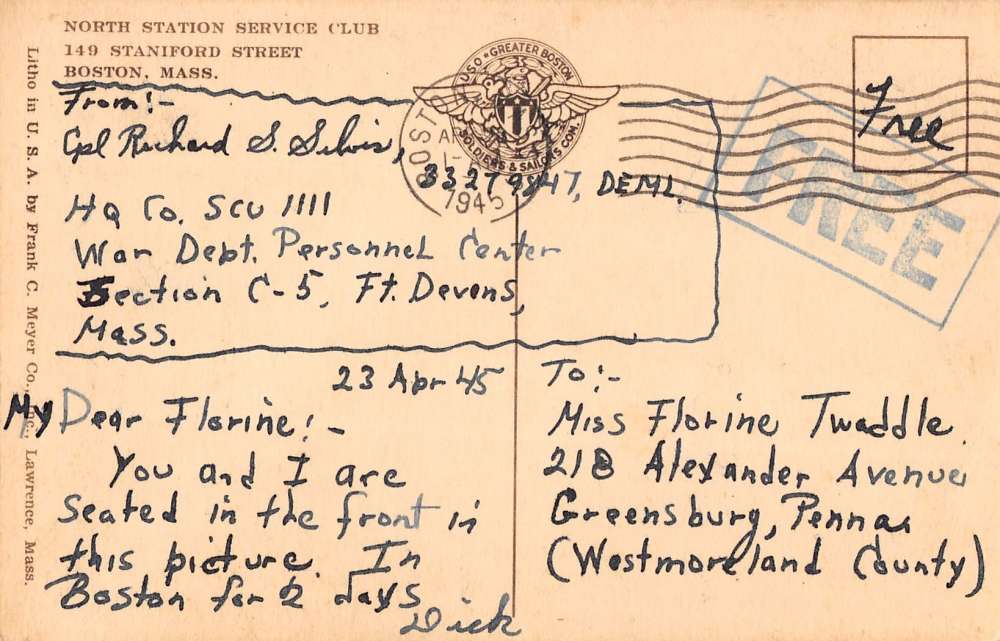 NORTH STATION SERVICE CLUB
149 STANIFORD STREET
BOSTON, MASS.
From:-
Cpl Richard S. Silvis,
33279847, DEML.
Hq Co. SCU 1111
War Dept. Personnel Center
Section C-5, Ft. Devens,
Mass.
23 Apr 45
My Dear Florine:-
You and I are
seated in the front in
this picture. In
Boston for 2 days
Dick
To:-
Miss Florine Twaddle
218 Alexander Avenue
Greensburg, Penna
(Westmoreland County)
Free
FREE
USO * GREATER BOSTON
SOLDIERS & SAILORS COM.
BOSTO
1945
Litho in U. S. A. by Frank C. Meyer Co., Inc., Lawrence, Mass.